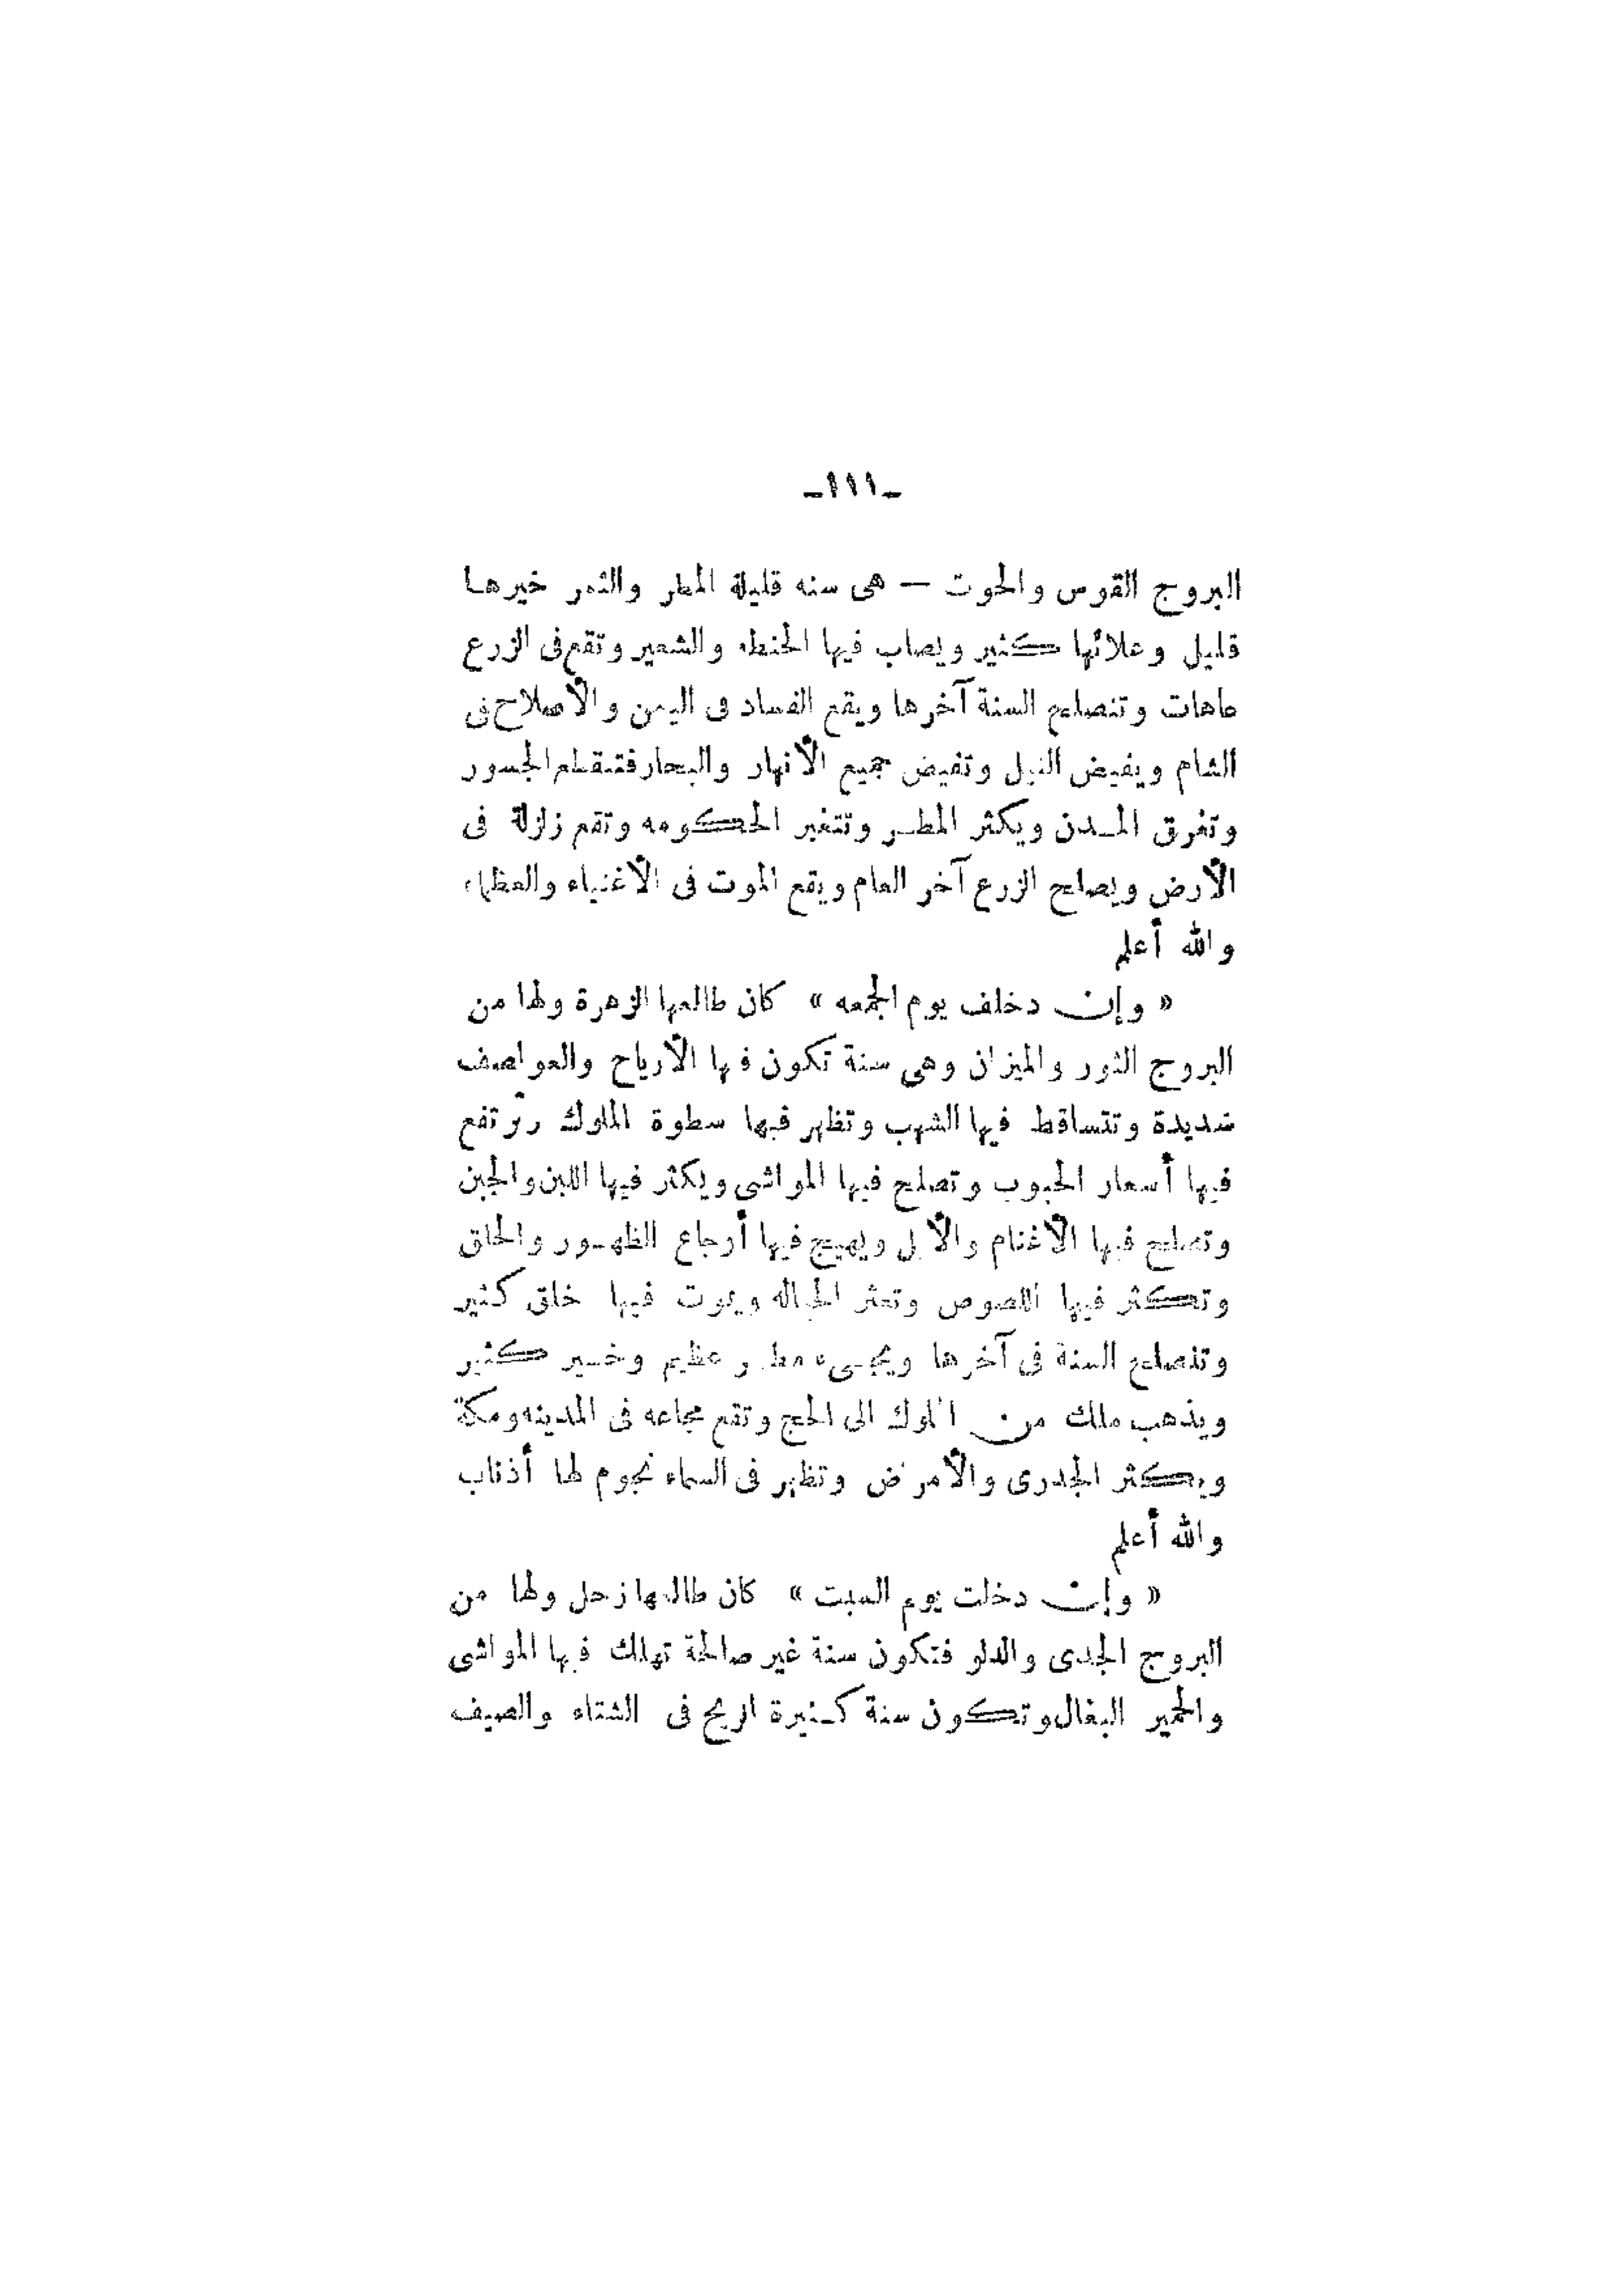 ـ١١١ـ
البروج القوس والحوت — هى سنه قليلة المطر والثمر خيرها
قليل وعلائها كثير ويصاب فيها الحنطه والشعير وتقع فى الزرع
عاهات وتنصلح السنة آخرها ويقع الفساد فى اليمن والأصلاح فى
الشام ويفيض النيل وتفيض جميع الأنهار والبحار فتنقطع الجسور
وتغرق المدن ويكثر المطر وتتغير الحكومه وتقع زلزلة فى
الأرض ويصلح الزرع آخر العام ويقع الموت فى الأغنياء والعظماء
والله أعلم
« وإن دخلف يوم الجمعه » كان طالعها الزهرة ولها من
البروج الثور والميزان وهى سنة تكون فيها الأرياح والعواصف
شديدة وتتساقط فيها الشهب وتظهر فيها سطوة الملوك وترتفع
فيها أسعار الحبوب وتصلح فيها المواشى ويكثر فيها اللبن والجبن
وتصلح فيها الأغنام والأبل ويهيج فيها أوجاع الظهور والحلق
وتكثر فيها اللصوص وتعثر الحباله ويموت فيها خلق كثير
وتنصلح السنة فى آخرها ويجىء مطر عظيم وخير كثير
ويذهب ملك من الملوك الى الحج وتقع مجاعه فى المدينه ومكة
ويكثر الجدرى والأمراض وتظهر فى السماء نجوم لها أذناب
والله أعلم
« وإن دخلت يوم السبت » كان طالعها زحل ولها من
البروج الجدى والدلو فتكون سنة غير صالحة تهلك فيها المواشى
والحمير البغال وتكون سنة كثيرة الريح فى الشتاء والصيف